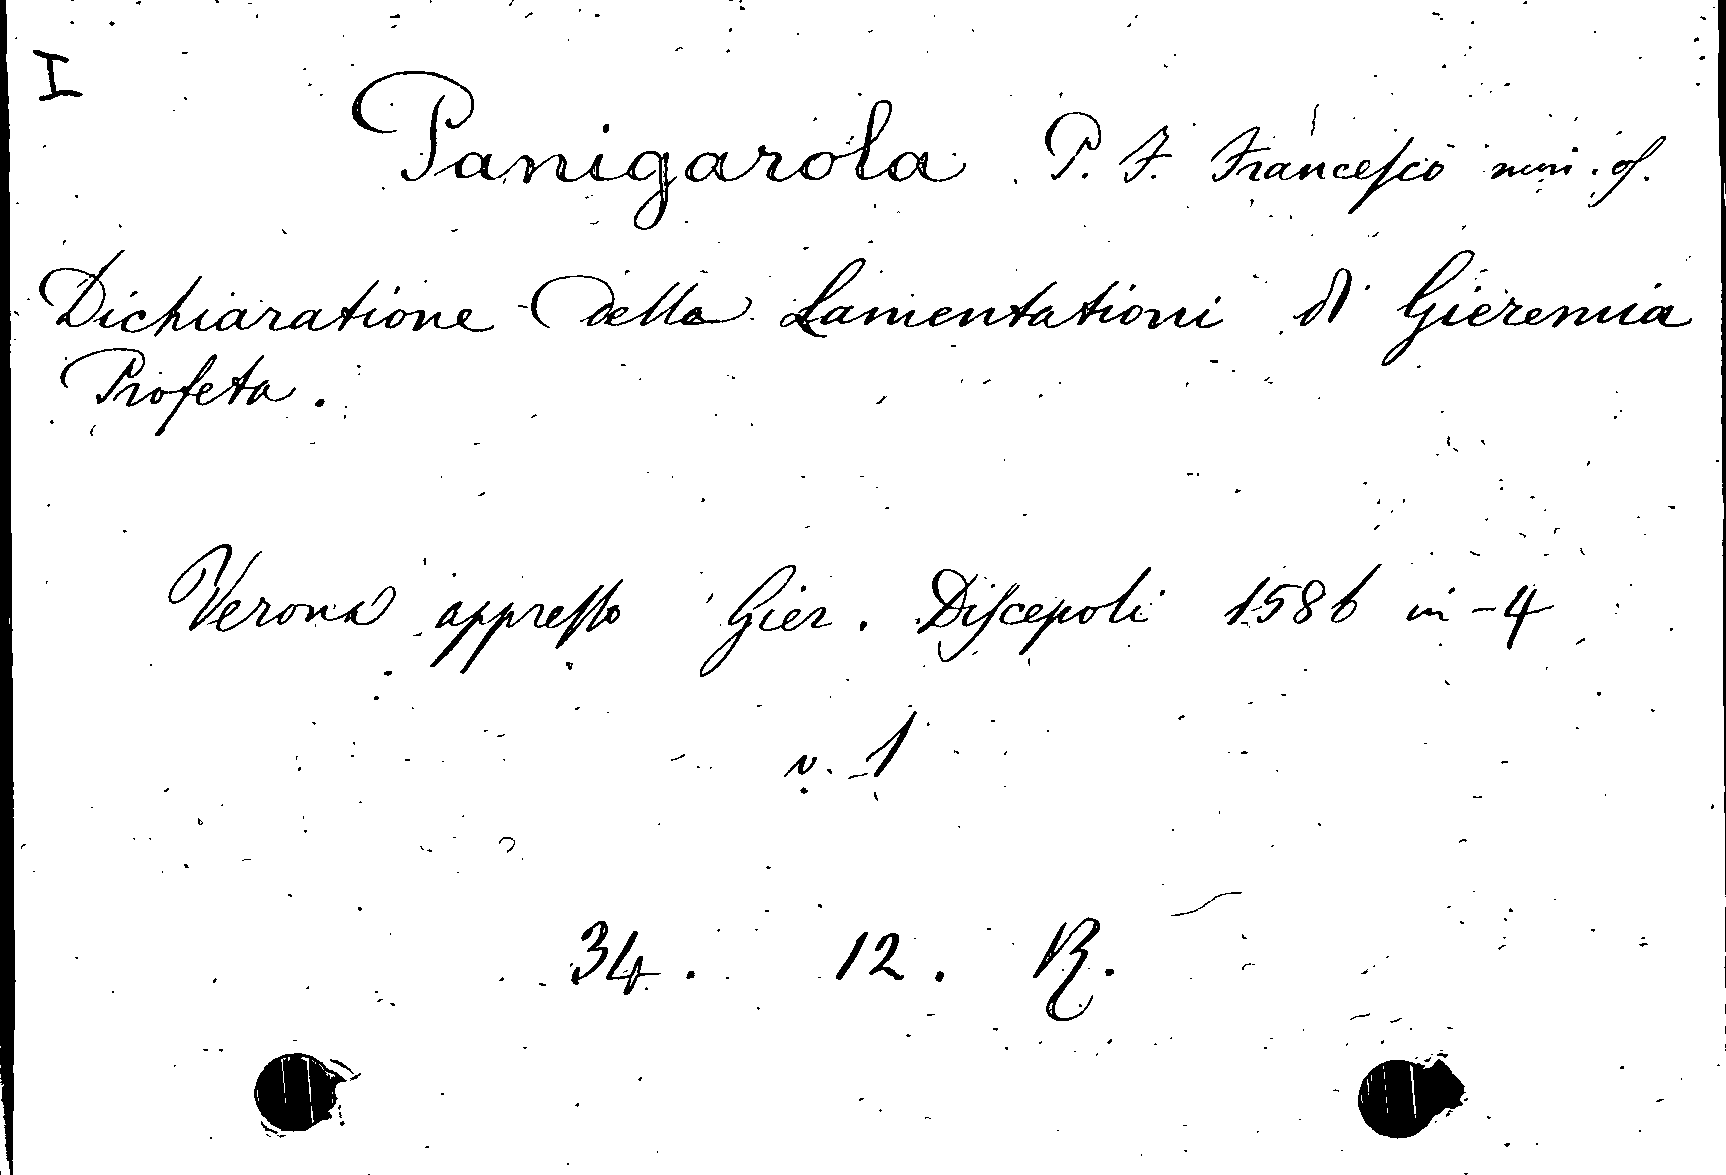 I
Panigarola P. F. Francesco min. of.
Dichiaratione delle Lamentationi di Gieremia
Profeta.
Verona appresso Gier. Discepoli 1586 in-4
v. 1
34. 12. R.